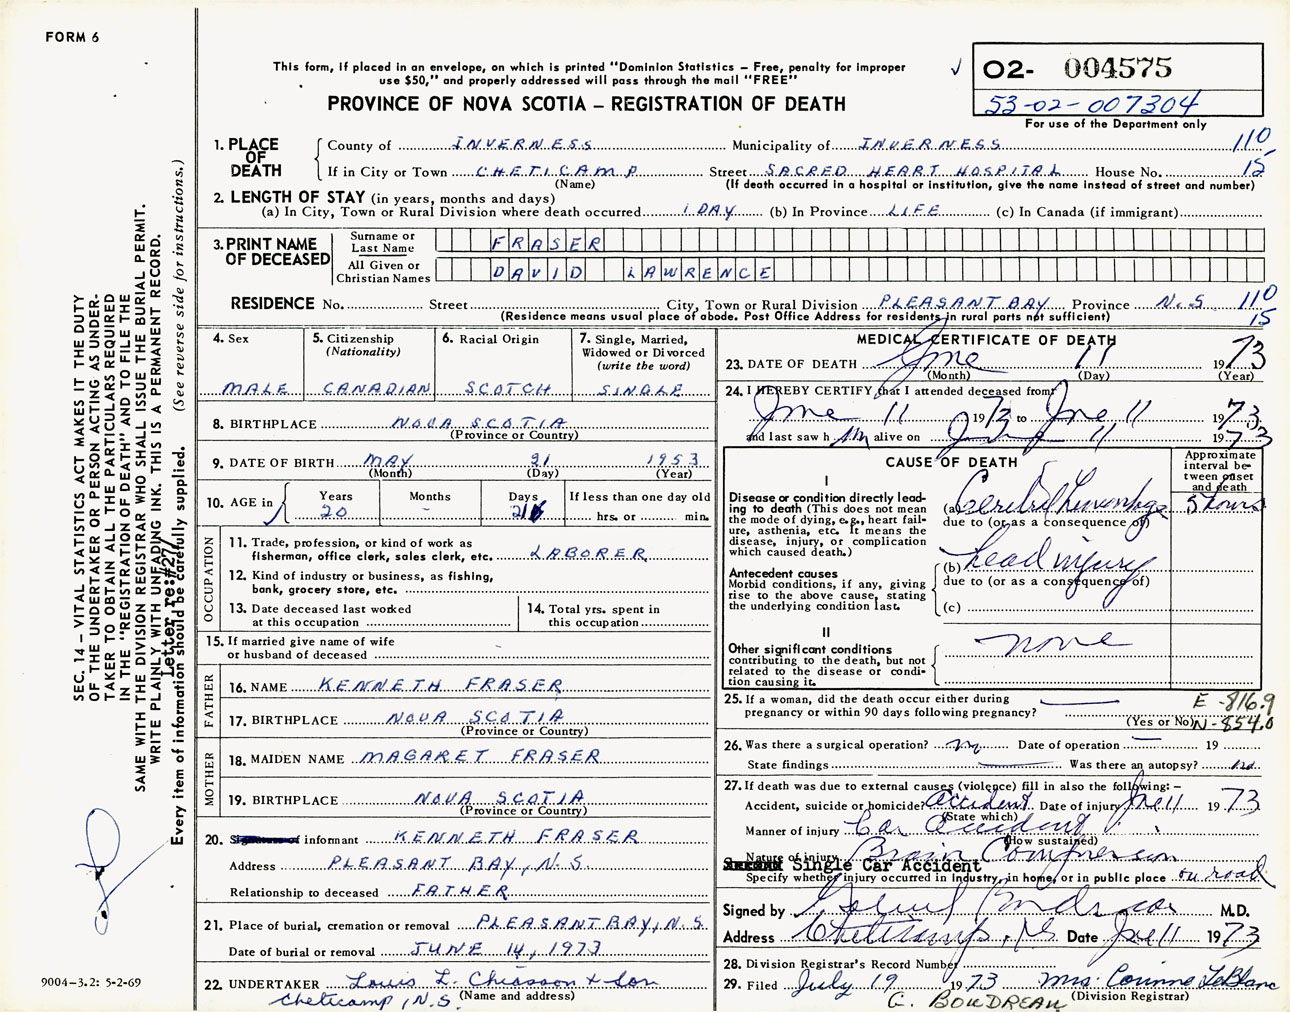 FORM 6
This form, if placed in an envelope, on which is printed "Dominion Statistics – Free, penalty for improper
use $50," and properly addressed will pass through the mail "FREE"
✓ O2- 004575
53-02-007304
For use of the Department only
PROVINCE OF NOVA SCOTIA – REGISTRATION OF DEATH
1. PLACE OF DEATH
County of INVERNESS Municipality of INVERNESS 110
If in City or Town CHETICAMP Street SACRED HEART HOSPITAL House No. 15
(Name) (If death occurred in a hospital or institution, give the name instead of street and number)
2. LENGTH OF STAY (in years, months and days)
(a) In City, Town or Rural Division where death occurred 1 DAY (b) In Province LIFE (c) In Canada (if immigrant)
3. PRINT NAME OF DECEASED
Surname or Last Name FRASER
All Given or Christian Names DAVID LAWRENCE
RESIDENCE No. Street City, Town or Rural Division PLEASANT BAY Province N.S 110
(Residence means usual place of abode. Post Office Address for residents in rural parts not sufficient) 15
4. Sex
MALE
5. Citizenship
(Nationality)
CANADIAN
6. Racial Origin
SCOTCH
7. Single, Married,
Widowed or Divorced
(write the word)
SINGLE
8. BIRTHPLACE NOVA SCOTIA
(Province or Country)
9. DATE OF BIRTH MAY 21 1953
(Month) (Day) (Year)
10. AGE in
Years Months Days If less than one day old
20 - 21 hrs. or min.
OCCUPATION
11. Trade, profession, or kind of work as
fisherman, office clerk, sales clerk, etc. LABORER
12. Kind of industry or business, as fishing,
bank, grocery store, etc.
13. Date deceased last worked
at this occupation
14. Total yrs. spent in
this occupation
15. If married give name of wife
or husband of deceased
FATHER
16. NAME KENNETH FRASER
17. BIRTHPLACE NOVA SCOTIA
(Province or Country)
MOTHER
18. MAIDEN NAME MAGARET FRASER
19. BIRTHPLACE NOVA SCOTIA
(Province or Country)
20. informant KENNETH FRASER
Address PLEASANT BAY, N.S.
Relationship to deceased FATHER
21. Place of burial, cremation or removal PLEASANT BAY, N.S
Date of burial or removal JUNE 14, 1973
22. UNDERTAKER Louis L. Chiasson & Son
(Name and address)
Cheticamp, N.S
MEDICAL CERTIFICATE OF DEATH
23. DATE OF DEATH June 11 1973
(Month) (Day) (Year)
24. I HEREBY CERTIFY that I attended deceased from
June 11 1973 to June 11 1973
and last saw h im alive on June 11 1973
CAUSE OF DEATH
Approximate
interval be-
tween onset
and death
I
Disease or condition directly lead-
ing to death (This does not mean
the mode of dying, e.g., heart fail-
ure, asthenia, etc. It means the
disease, injury, or complication
which caused death.)
(a) Cerebral hemorrhage 5 hours
due to (or as a consequence of)
Antecedent causes
Morbid conditions, if any, giving
rise to the above cause, stating
the underlying condition last.
(b) head injury
due to (or as a consequence of)
(c)
II
Other significant conditions
contributing to the death, but not
related to the disease or condi-
tion causing it.
none
25. If a woman, did the death occur either during
pregnancy or within 90 days following pregnancy?
(Yes or No)
E-816.9
N-854.0
26. Was there a surgical operation? no Date of operation 19
State findings Was there an autopsy? no
27. If death was due to external causes (violence) fill in also the following: –
Accident, suicide or homicide? Accident Date of injury June 11 1973
(State which)
Manner of injury Car Accident
(How sustained)
Nature of injury Brain Compression
Single Car Accident
Specify whether injury occurred in industry, in home, or in public place on road
Signed by M.D.
Address Cheticamp, NS Date June 11 1973
28. Division Registrar's Record Number
29. Filed July 19 1973 Mrs. Corinne LeBlanc
(Division Registrar)
C. BOUDREAU
SEC. 14 – VITAL STATISTICS ACT MAKES IT THE DUTY
OF THE UNDERTAKER OR PERSON ACTING AS UNDER-
TAKER TO OBTAIN ALL THE PARTICULARS REQUIRED
IN THE "REGISTRATION OF DEATH" AND TO FILE THE
SAME WITH THE DIVISION REGISTRAR WHO SHALL ISSUE THE BURIAL PERMIT.
WRITE PLAINLY WITH UNFADING INK. THIS IS A PERMANENT RECORD.
Letter re:#27
Every item of information should be carefully supplied. (See reverse side for instructions.)
9004-3.2: 5-2-69